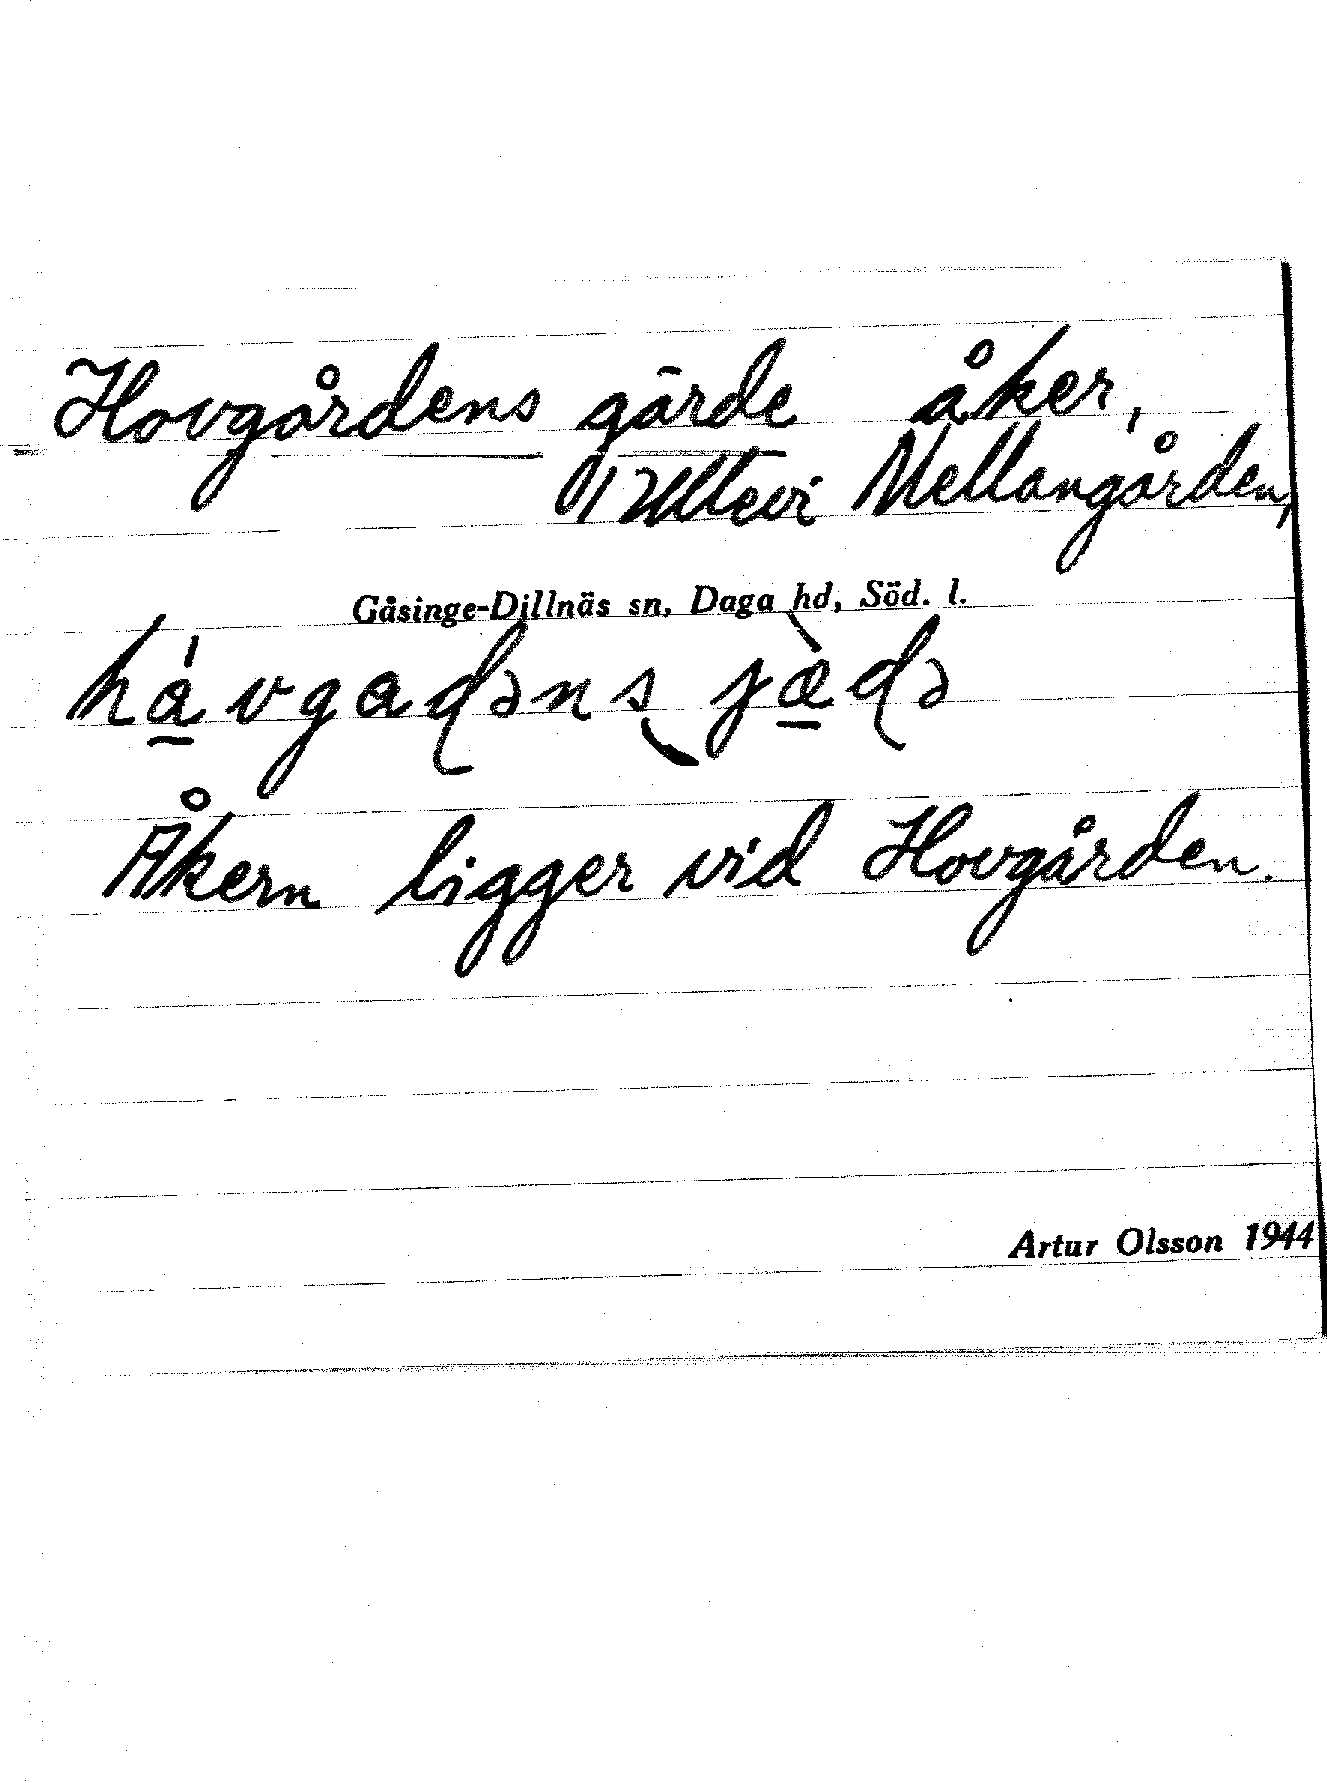 Hovgårdens gärde åker,
Ultevi Mellangården,
Gåsinge-Dillnäs sn, Daga hd, Söd. l.
Åkern ligger vid Hovgården.
Artur Olsson 1944